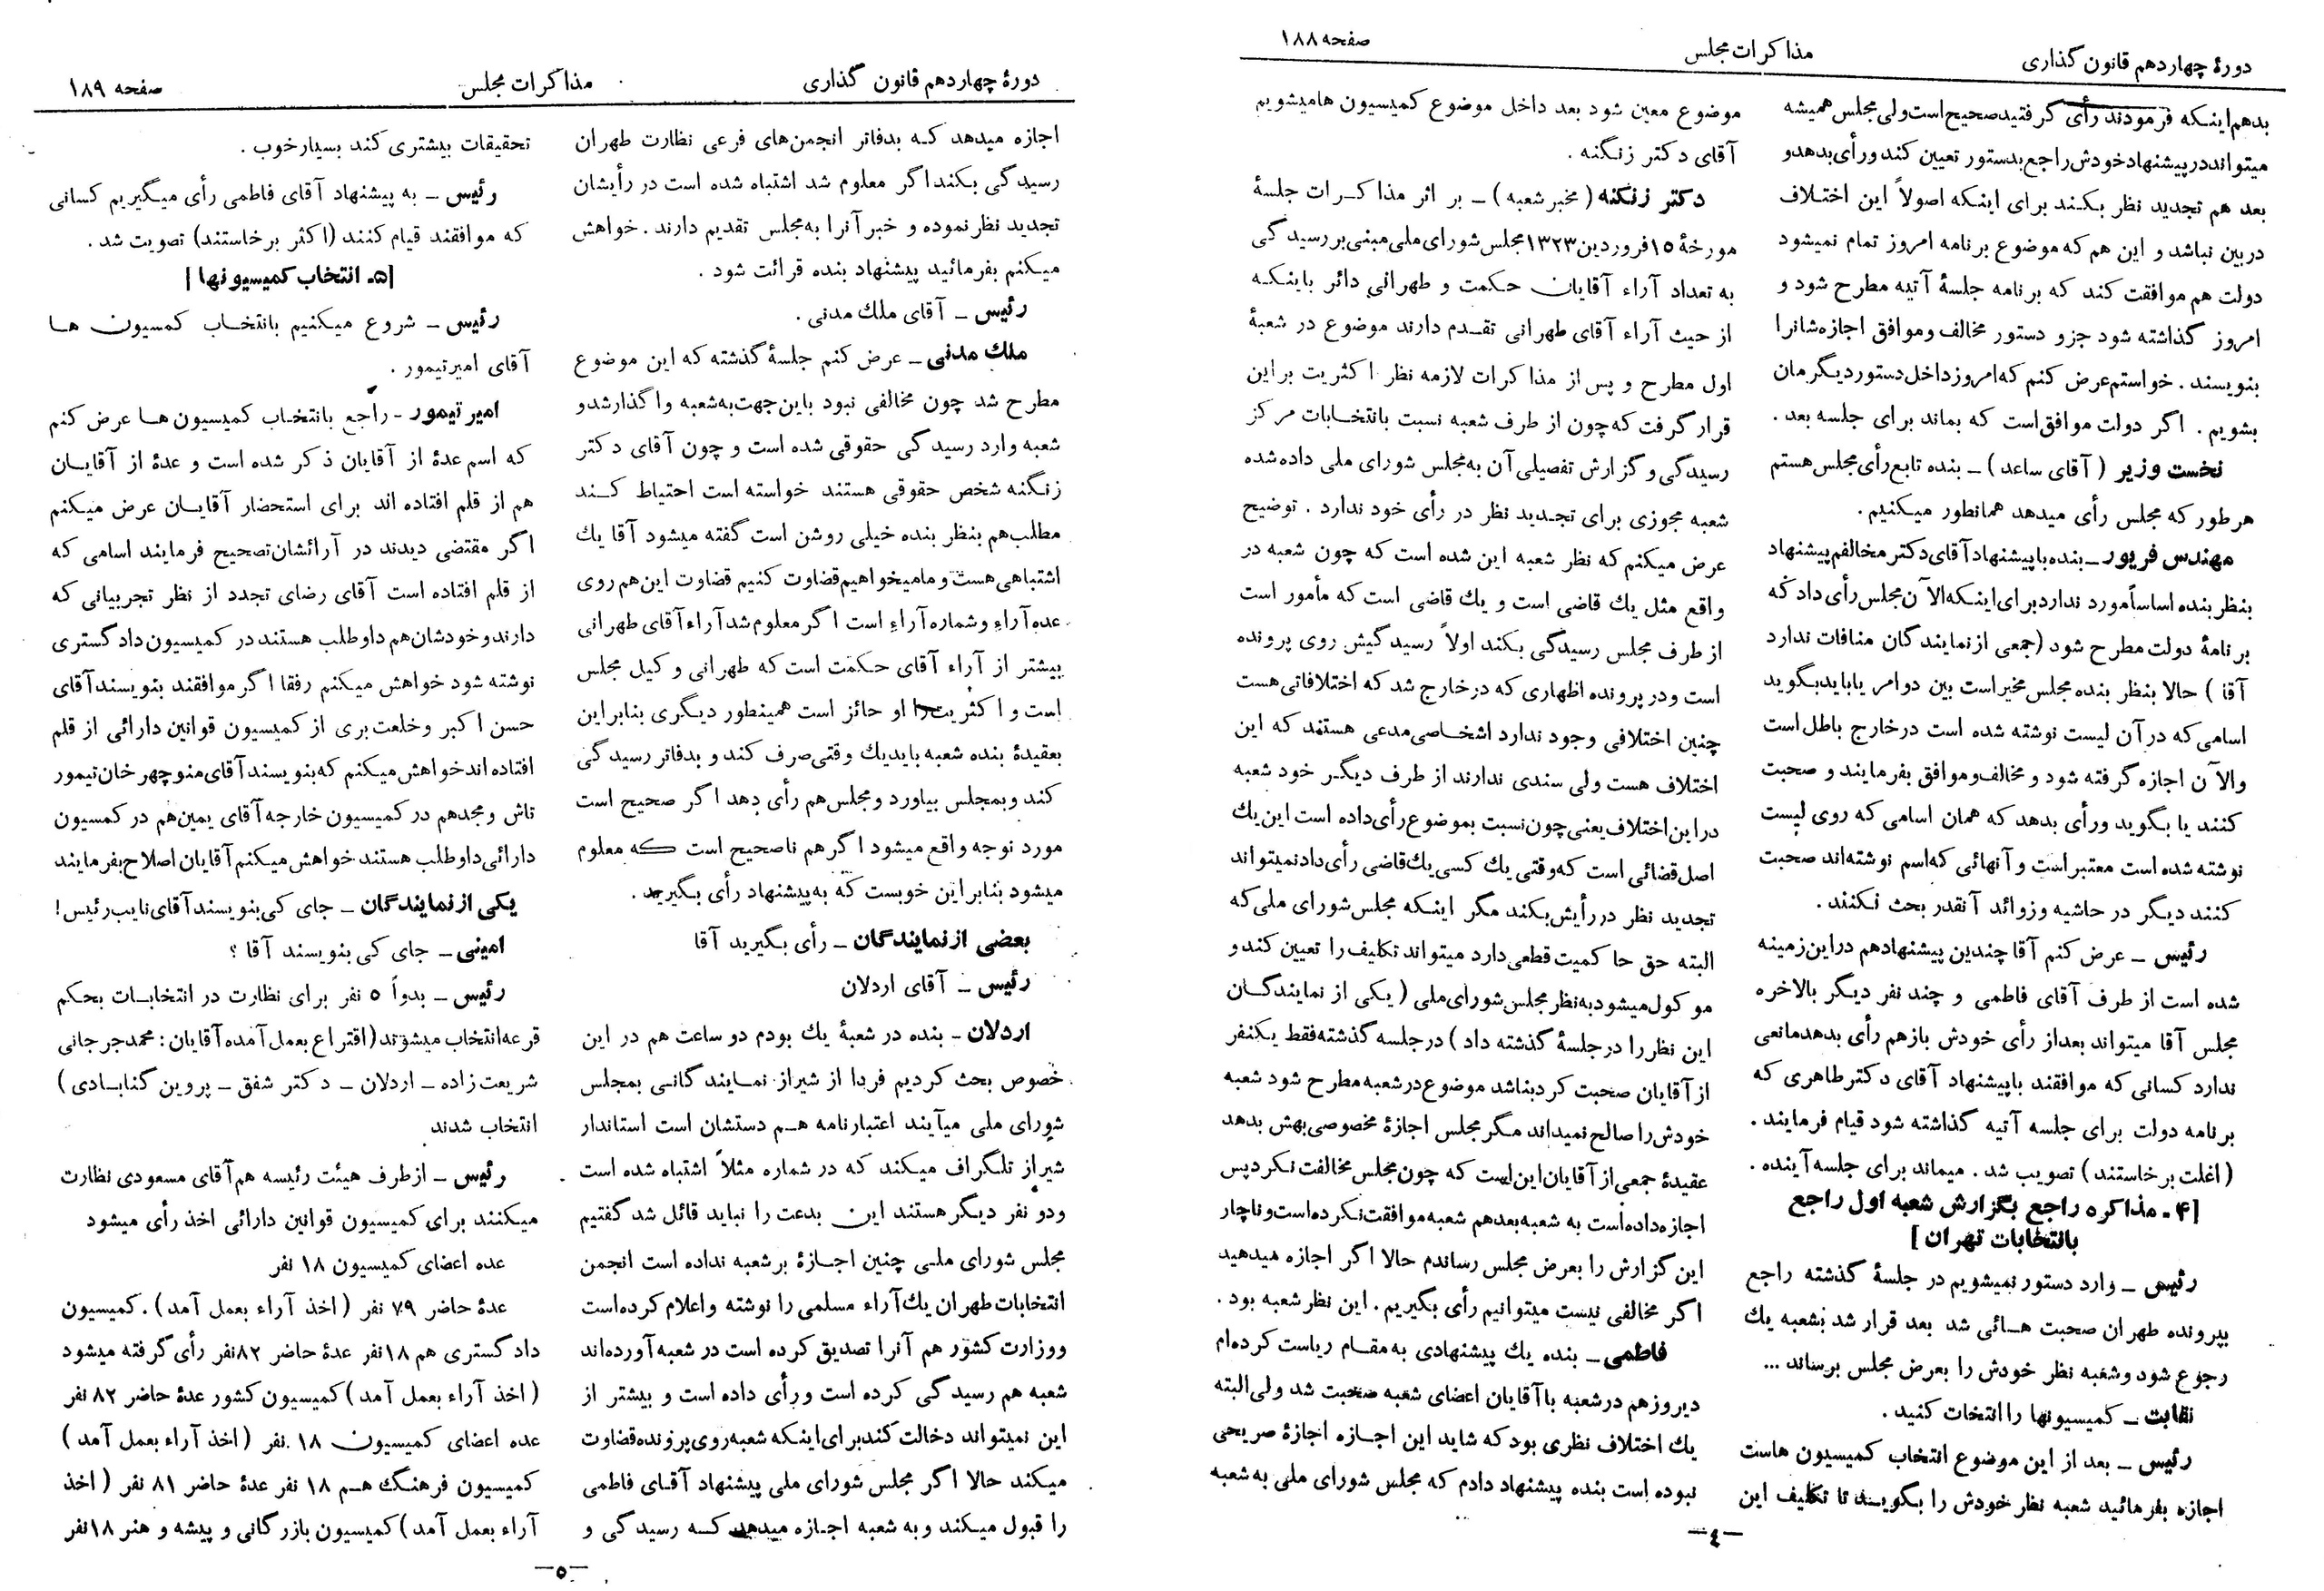 دورهٔ چهاردهم قانون گذاری
مذاکرات مجلس
صفحه ۱۸۸
بدهم اینکه فرمودند رأی گرفتید صحیح است ولی مجلس همیشه
میتواند در پیشنهاد خودش راجع بدستور تعیین کند ورأی بدهد و
بعد هم تجدید نظر بکند برای اینکه اصولاً این اختلاف
دربین نباشد و این هم که موضوع برنامه امروز تمام نمیشود
دولت هم موافقت کند که برنامه جلسهٔ آتیه مطرح شود و
امروز گذاشته شود جزو دستور مخالف وموافق اجازه‌شانرا
بنویسند . خواستم عرض کنم که امروز داخل دستور دیگرمان
بشویم . اگر دولت موافق است که بماند برای جلسه بعد .
نخست وزیر ( آقای ساعد ) ـ بنده تابع رأی مجلس هستم
هرطور که مجلس رأی میدهد همانطور میکنیم .
مهندس فریور ـ بنده با پیشنهاد آقای دکتر مخالفم پیشنهاد
بنظر بنده اساساً مورد ندارد برای اینکه الآن مجلس رأی داد که
برنامهٔ دولت مطرح شود (جمعی از نمایندگان منافات ندارد
آقا ) حالا بنظر بنده مجلس مخیر است بین دو امر یا باید بگوید
اسامی که در آن لیست نوشته شده است در خارج باطل است
والآن اجازه گرفته شود و مخالف وموافق بفرمایند و صحبت
کنند یا بگوید ورأی بدهد که همان اسامی که روی لیست
نوشته شده است معتبر است و آنهائی که اسم نوشته‌اند صحبت
کنند دیگر در حاشیه وزوائد آنقدر بحث نکنند .
رئیس ـ عرض کنم آقا چندین پیشنهاد هم در این زمینه
شده است از طرف آقای فاطمی و چند نفر دیگر بالاخره
مجلس آقا میتواند بعد از رأی خودش بازهم رأی بدهد مانعی
ندارد کسانی که موافقند با پیشنهاد آقای دکتر طاهری که
برنامه دولت برای جلسه آتیه گذاشته شود قیام فرمایند .
( اغلت برخاستند ) تصویب شد . میماند برای جلسه آینده .
[۴ ـ مذاکره راجع بگزارش شعبه اول راجع
بانتخابات تهران ]
رئیس ـ وارد دستور نمیشویم در جلسهٔ گذشته راجع
بپرونده طهران صحبت هـائی شد بعد قرار شد بشعبه یك
رجوع شود وشعبه نظر خودش را بعرض مجلس برساند ...
نقابت ـ کمیسیونها را انتخات کنید .
رئیس ـ بعد از این موضوع انتخاب کمیسیون هاست
اجازه بفرمائید شعبه نظر خودش را بگویـند تا تکلیف این
موضوع معین شود بعد داخل موضوع کمیسیون هامیشویم
آقای دکتر زنگنه .
دکتر زنگنه ( مخبر شعبه ) ـ بر اثر مذاکـرات جلسهٔ
مورخهٔ ۱۵ فروردین ۱۳۲۳ مجلس شورای ملی مبنی بررسیدگی
به تعداد آراء آقایان حکمت و طهرانی دائر باینکـه
از حیث آراء آقای طهرانی تقدم دارند موضوع در شعبهٔ
اول مطرح و پس از مذاکرات لازمه نظر اکثریت براین
قرار گرفت که چون از طرف شعبه نسبت بانتخابات مرکز
رسیدگی و گزارش تفصیلی آن به مجلس شورای ملی داده شده
شعبه مجوزی برای تجدید نظر در رأی خود ندارد . توضیح
عرض میکنم که نظر شعبه این شده است که چون شعبه در
واقع مثل یك قاضی است و یك قاضی است که مأمور است
از طرف مجلس رسیدگی بکند اولاً رسیدگیش روی پرونده
است و در پرونده اظهاری که در خارج شد که اختلافاتی هست
چنین اختلافی وجود ندارد اشخاصی مدعی هستند که این
اختلاف هست ولی سندی ندارند از طرف دیگر خود شعبه
در این اختلاف یعنی چون نسبت بموضوع رأی داده است این یك
اصل قضائی است که وقتی یك کسی یك قاضی رأی داد نمیتواند
تجدید نظر در رأیش بکند مگر اینکه مجلس شورای ملی که
البته حق حاکمیت قطعی دارد میتواند تکلیف را تعیین کند و
موکول میشود به نظر مجلس شورای ملی ( یکی از نمایندگـان
این نظر را در جلسهٔ گذشته داد ) در جلسه گذشته فقط یکنفر
از آقایان صحبت کرد بناشد موضوع در شعبه مطرح شود شعبه
خودش را صالح نمیداند مگر مجلس اجازهٔ مخصوصی بهش بدهد
عقیدهٔ جمعی از آقایان این است که چون مجلس مخالفت نکرد پس
اجازه داده است به شعبه بعد هم شعبه موافقت نکرده است و ناچار
این گزارش را بعرض مجلس رساندم حالا اگر اجازه میدهید
اگر مخالفی نیست میتوانیم رأی بگیریم . این نظر شعبه بود .
فاطمی ـ بنده یك پیشنهادی به مقـام ریاست کرده‌ام
دیروز هم در شعبه با آقایان اعضای شعبه صحبت شد ولی البته
یك اختلاف نظری بود که شاید این اجـازه اجازهٔ صریحی
نبوده است بنده پیشنهاد دادم که مجلس شورای ملی به شعبه
—٤—
دورهٔ چهاردهم قانون گذاری
مذاکرات مجلس
صفحه ۱۸۹
اجازه میدهد کـه بدفاتر انجمن‌های فرعی نظارت طهران
رسیدگی بکند اگر معلوم شد اشتباه شده است در رأیشان
تجدید نظر نموده و خبر آنرا به مجلس تقدیم دارند . خواهش
میکنم بفرمائید پیشنهاد بنده قرائت شود .
رئیس ـ آقای ملك مدنی .
ملك مدنی ـ عرض کنم جلسهٔ گذشته که این موضوع
مطرح شد چون مخالفی نبود باین جهت به شعبه واگذار شد و
شعبه وارد رسیدگی حقوقی شده است و چون آقای دکتر
زنگنه شخص حقوقی هستند خواسته است احتیاط کـند
مطلب هم بنظر بنده خیلی روشن است گفته میشود آقا یك
اشتباهی هست و ما میخواهیم قضاوت کنیم قضاوت این هم روی
عده آراء و شماره آراء است اگر معلوم شد آراء آقای طهرانی
بیشتر از آراء آقای حکمت است که طهرانی وکیل مجلس
است و اکثریت را او حائز است همینطور دیگری بنابراین
بعقیدهٔ بنده شعبه باید یك وقتی صرف کند و بدفاتر رسیدگی
کند و بمجلس بیاورد و مجلس هم رأی دهد اگر صحیح است
مورد توجه واقع میشود اگر هم ناصحیح است که معلوم
میشود بنابراین خوبست که به پیشنهاد رأی بگیرید .
بعضی از نمایندگان ـ رأی بگیرید آقا
رئیس ـ آقای اردلان
اردلان ـ بنده در شعبهٔ یك بودم دو ساعت هم در این
خصوص بحث کردیم فردا از شیراز نمـایندگانـی بمجلس
شورای ملی میآیند اعتبارنامه هـم دستشان است استاندار
شیراز تلگراف میکند که در شماره مثلاً اشتباه شده است
ودو نفر دیگر هستند این بدعت را نباید قائل شد گفتیم
مجلس شورای ملـی چنین اجـازهٔ بر شعبه نداده است انجمن
انتخابات طهران یك آراء مسلمی را نوشته و اعلام کرده است
ووزارت کشور هم آنرا تصدیق کرده است در شعبه آورده‌اند
شعبه هم رسیدگی کرده است ورأی داده است و بیشتر از
این نمیتواند دخالت کند برای اینکه شعبه روی پرونده قضاوت
میکند حالا اگر مجلس شورای ملی پیشنهاد آقـای فاطمی
را قبول میکند و به شعبه اجـازه میدهد کـه رسیدگی و
تحقیقات بیشتری کند بسیار خوب .
رئیس ـ به پیشنهاد آقای فاطمی رأی میگیریم کسانی
که موافقند قیام کنند (اکثر برخاستند) تصویت شد .
[۵ـ انتخاب کمیسیونها]
رئیس ـ شروع میکنیم بانتخـاب کمسیون هـا
آقای امیر تیمور .
امیر تیمور ـ راجع بانتخـاب کمیسیون هـا عرض کنم
که اسم عدهٔ از آقایان ذکر شده است و عدهٔ از آقایـان
هم از قلم افتاده اند برای استحضار آقایـان عرض میکنم
اگر مقتضی دیدند در آرائشان تصحیح فرمایند اسامی که
از قلم افتاده است آقای رضای تجدد از نظر تجربیاتی که
دارند و خودشان هم داوطلب هستند در کمیسیون دادگستری
نوشته شود خواهش میکنم رفقا اگر موافقند بنویسند آقای
حسن اکبر و خلعت بری از کمیسیون قوانین دارائی از قلم
افتاده اند خواهش میکنم که بنویسند آقای منوچهر خان تیمور
تاش و مجد هم در کمیسیون خارجه آقای یمین هم در کمسیون
دارائی داوطلب هستند خواهش میکنم آقایان اصلاح بفرمایند
یکی از نمایندگان ـ جای کی بنویسند آقای نایب رئیس !
امینی ـ جای کی بنویسند آقا ؟
رئیس ـ بدواً ۵ نفر برای نظارت در انتخابـات بحکم
قرعه انتخاب میشوند (اقتراع بعمل آمده آقایان : محمد جرجانی
شریعت زاده ـ اردلان ـ دکتر شفق ـ پروین گنابـادی )
انتخاب شدند
رئیس ـ از طرف هیئت رئیسه هم آقای مسعودی نظارت
میکنند برای کمیسیون قوانین دارائی اخذ رأی میشود
عده اعضای کمیسیون ۱۸ نفر
عدهٔ حاضر ۷۹ نفر ( اخذ آراء بعمل آمد ) . کمیسیون
دادگستری هم ۱۸ نفر عدهٔ حاضر ۸۲ نفر رأی گرفته میشود
( اخذ آراء بعمل آمد ) کمیسیون کشور عدهٔ حاضر ۸۲ نفر
عده اعضای کمیسیون ۱۸ نفر ( اخذ آراء بعمل آمد )
کمیسیون فرهنگ هـم ۱۸ نفر عدهٔ حاضر ۸۱ نفر ( اخذ
آراء بعمل آمد ) کمیسیون بازرگانی و پیشه و هنر ۱۸ نفر
—٥—